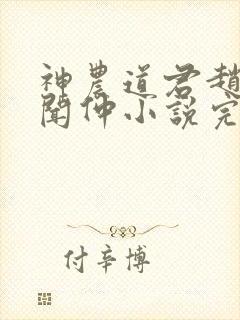 神農道君趙
聞仲小說完
付辛博